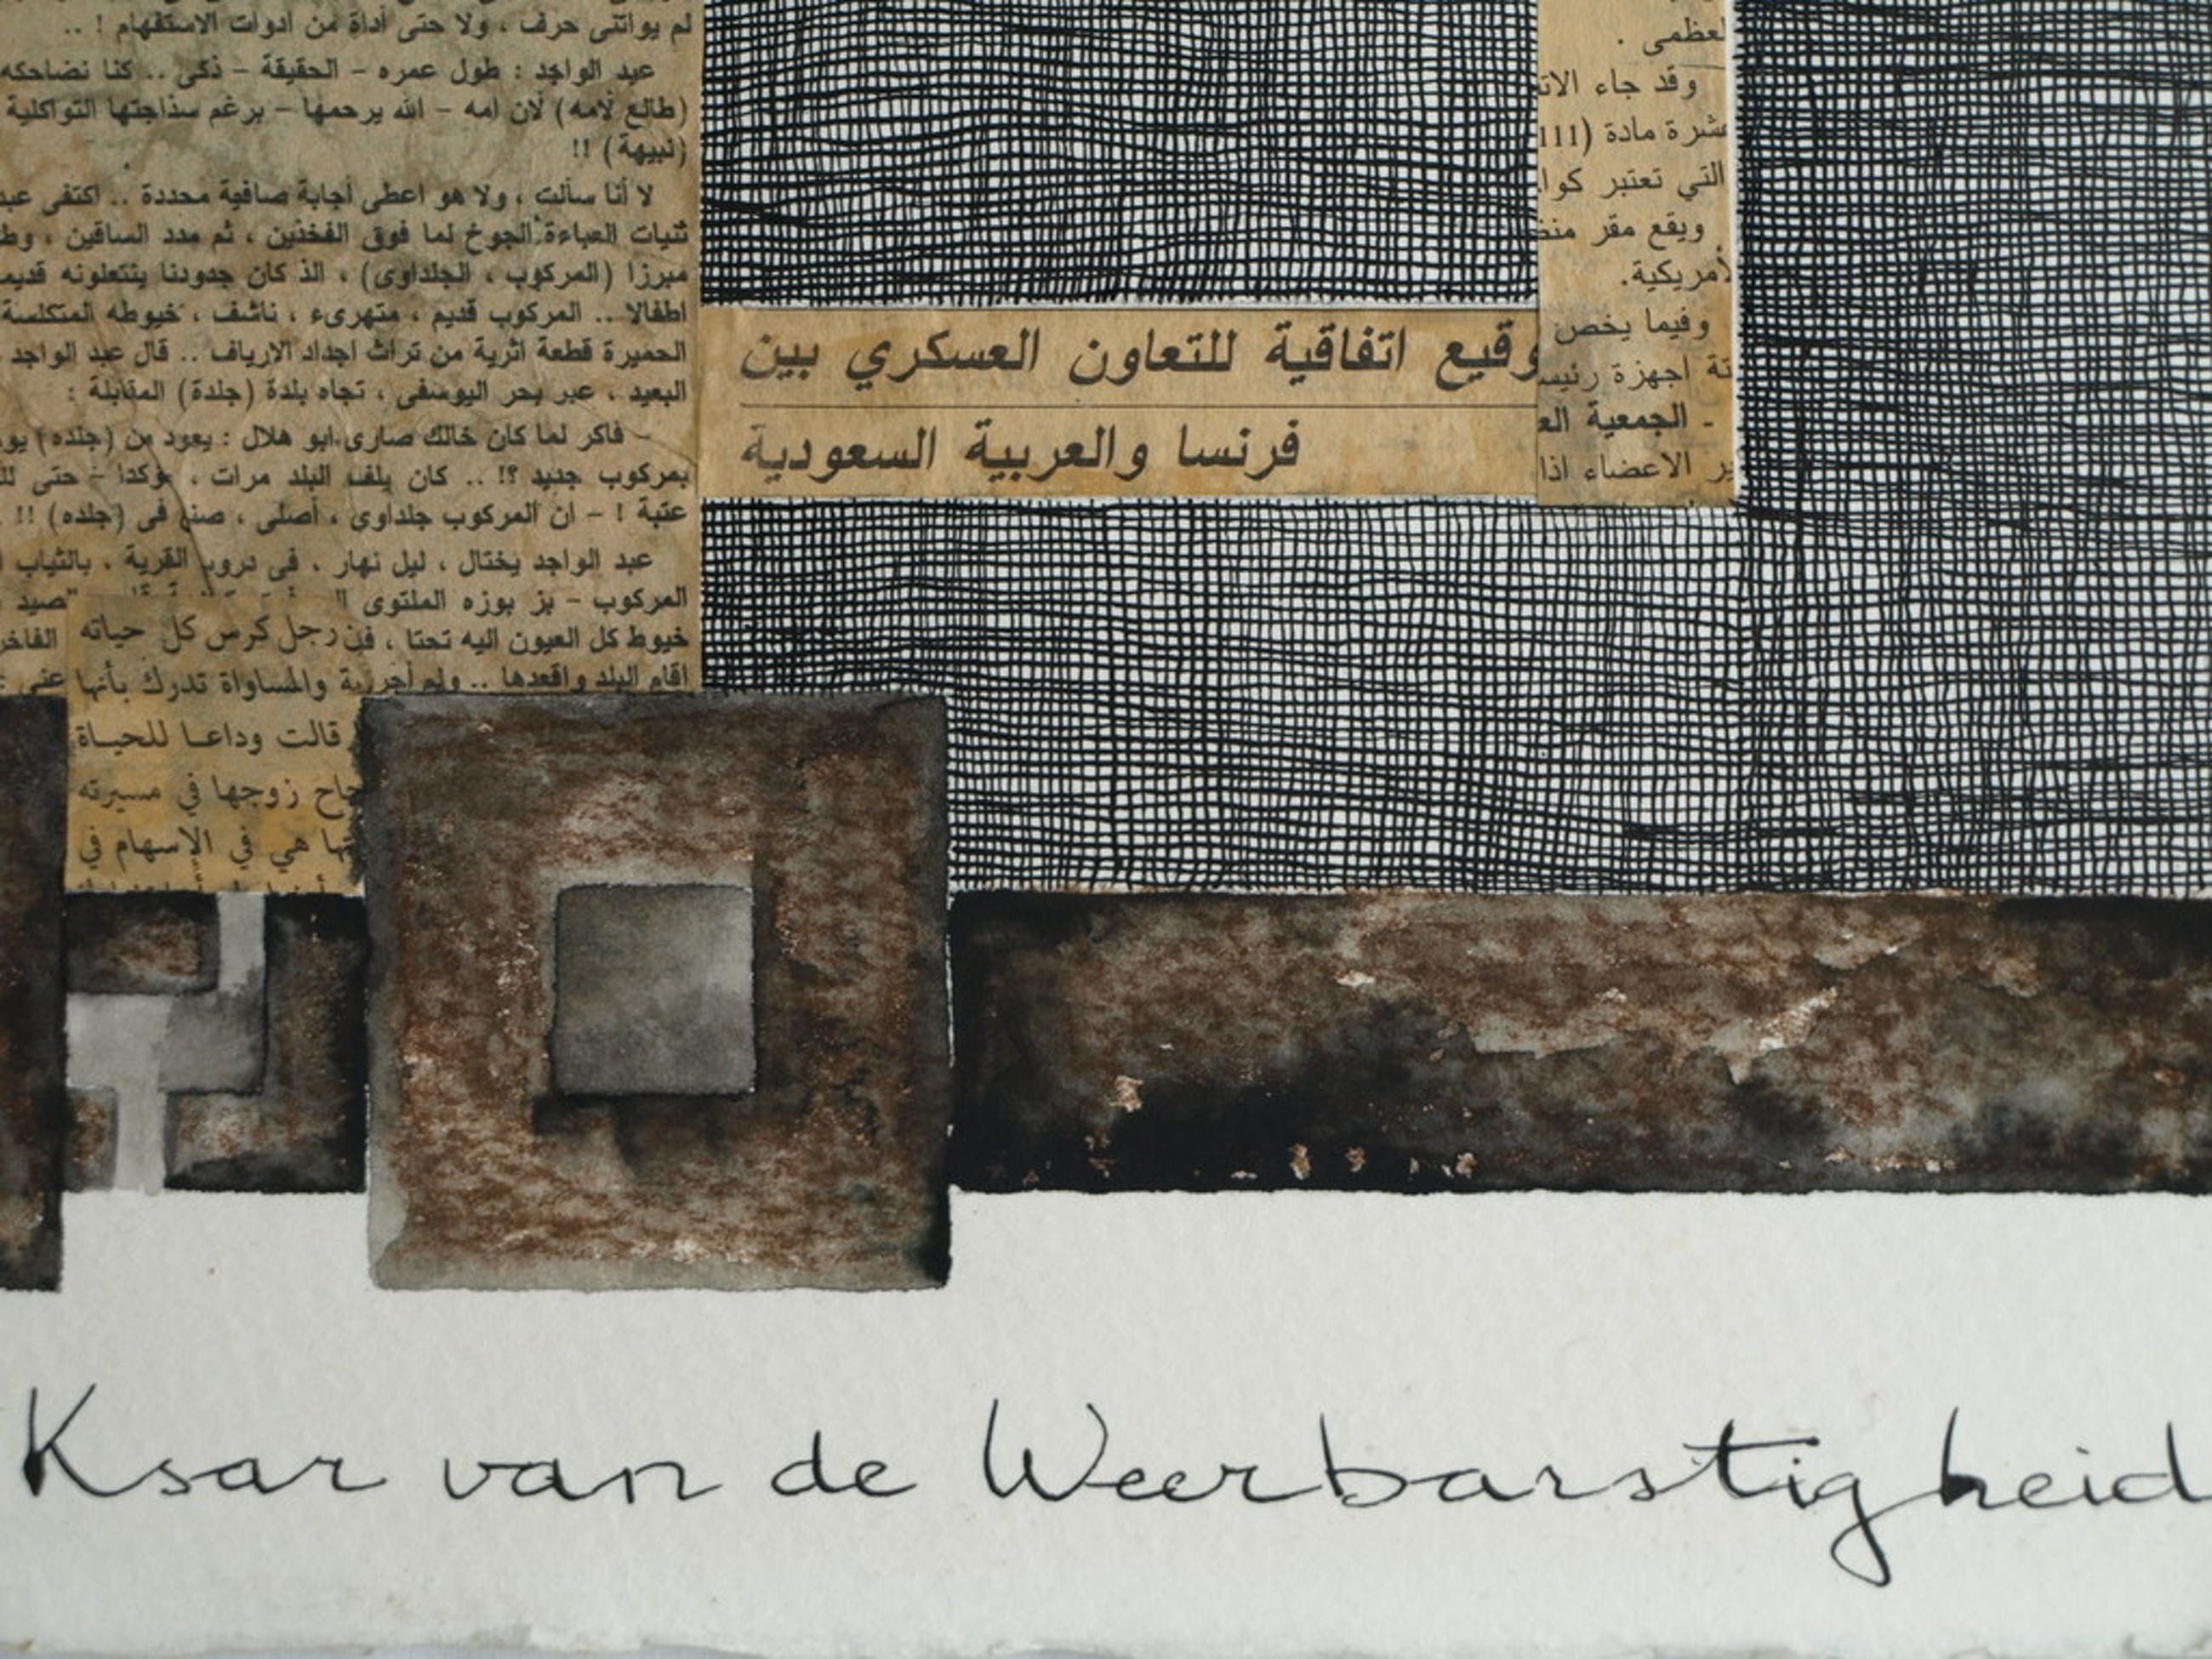 لم يواتنى حرف ، ولا حتى أداة من ادوات الاستفهام ! ..
عبد الواجد : طول عمره – الحقيقة – ذكى .. كنا نضاحكه
(طالع لامه) لان امه – الله يرحمها – برغم سذاجتها التواكلية
(نبيهة) !!
لا أنا سألت ، ولا هو اعطى اجابة صافية محددة .. اكتفى عبد
ثنيات العباءة الجوخ لما فوق الفخذين ، ثم مدد الساقين ،
مبرزا (المركوب ، الجلداوى) ، الذ كان جدودنا ينتعلونه قديما
اطفالا .. المركوب قديم ، متهرىء ، ناشف ، خيوطه المتكلسة
الحميرة قطعة اثرية من تراث اجداد الارياف .. قال عبد الواجد
البعيد ، عبر بحر اليوسفى ، تجاه بلدة (جلدة) المقابلة :
– فاكر لما كان خالك صارى ابو هلال : يعود من (جلده)
بمركوب جديد ؟! .. كان يلف البلد مرات ، مؤكدا – حتى
عتبة ! – ان المركوب جلداوى ، أصلى ، صنع فى (جلده) !!
عبد الواجد يختال ، ليل نهار ، فى دروب القرية ، بالثياب
المركوب – بز بوزه الملتوى
خيوط كل العيون اليه تحتا ،
اقام البلد واقعدها ..
رجل كرس كل حياته
والمساواة تدرك بأنها
قالت وداعا للحياة
زوجها في مسيرته
هي في الاسهام في
وقيع اتفاقية للتعاون العسكري بين
فرنسا والعربية السعودية
لعظمى .
وقد جاء
عشرة مادة (111
التي تعتبر
ويقع مقر
لأمريكية.
وفيما يخص
اجهزة
- الجمعية
الاعضاء اذا
Ksar van de Weerbarstigheid